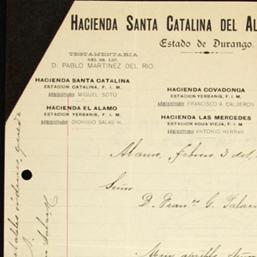 HACIENDA SANTA CATALINA DEL AL
Estado de Durango.
TESTAMENTARIA
DEL SR. LIC.
D. PABLO MARTINEZ DEL RIO.
HACIENDA SANTA CATALINA
ESTACION CATALINA, F. I. M.
ADMINISTRADOR MIGUEL SOTO
HACIENDA COVADONGA
ESTACION YERBANIS, F. I. M.
ADMINISTRADOR FRANCISCO A. CALDERON
HACIENDA EL ALAMO
ESTACION YERBANIS, F. I. M.
ADMINISTRADOR DIONISIO SALAS H.
HACIENDA LAS MERCEDES
ESTACION AGUA VIEJA, F. I. M.
ADMINISTRADOR ANTONIO HERRAN
Alamo, febrero 3 del
Señor
D. Fran.co G. Palac
Muy apreble